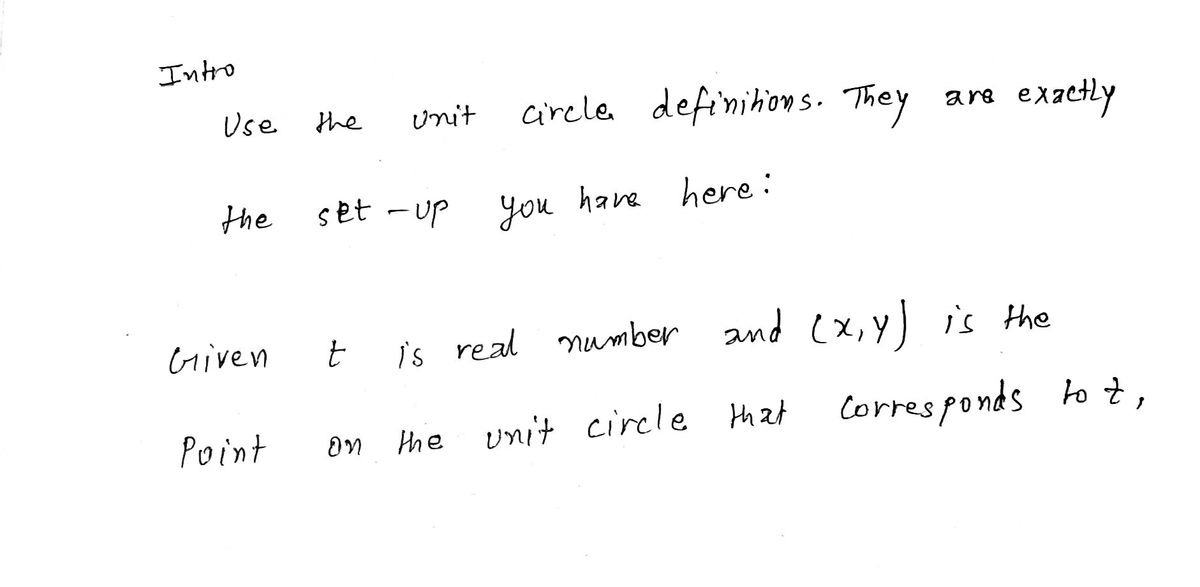 Intro
Use the unit circle definitions. They are exactly
the set-up you have here:
Given t is real number and (x,y) is the
Point on the unit circle that corresponds to t,